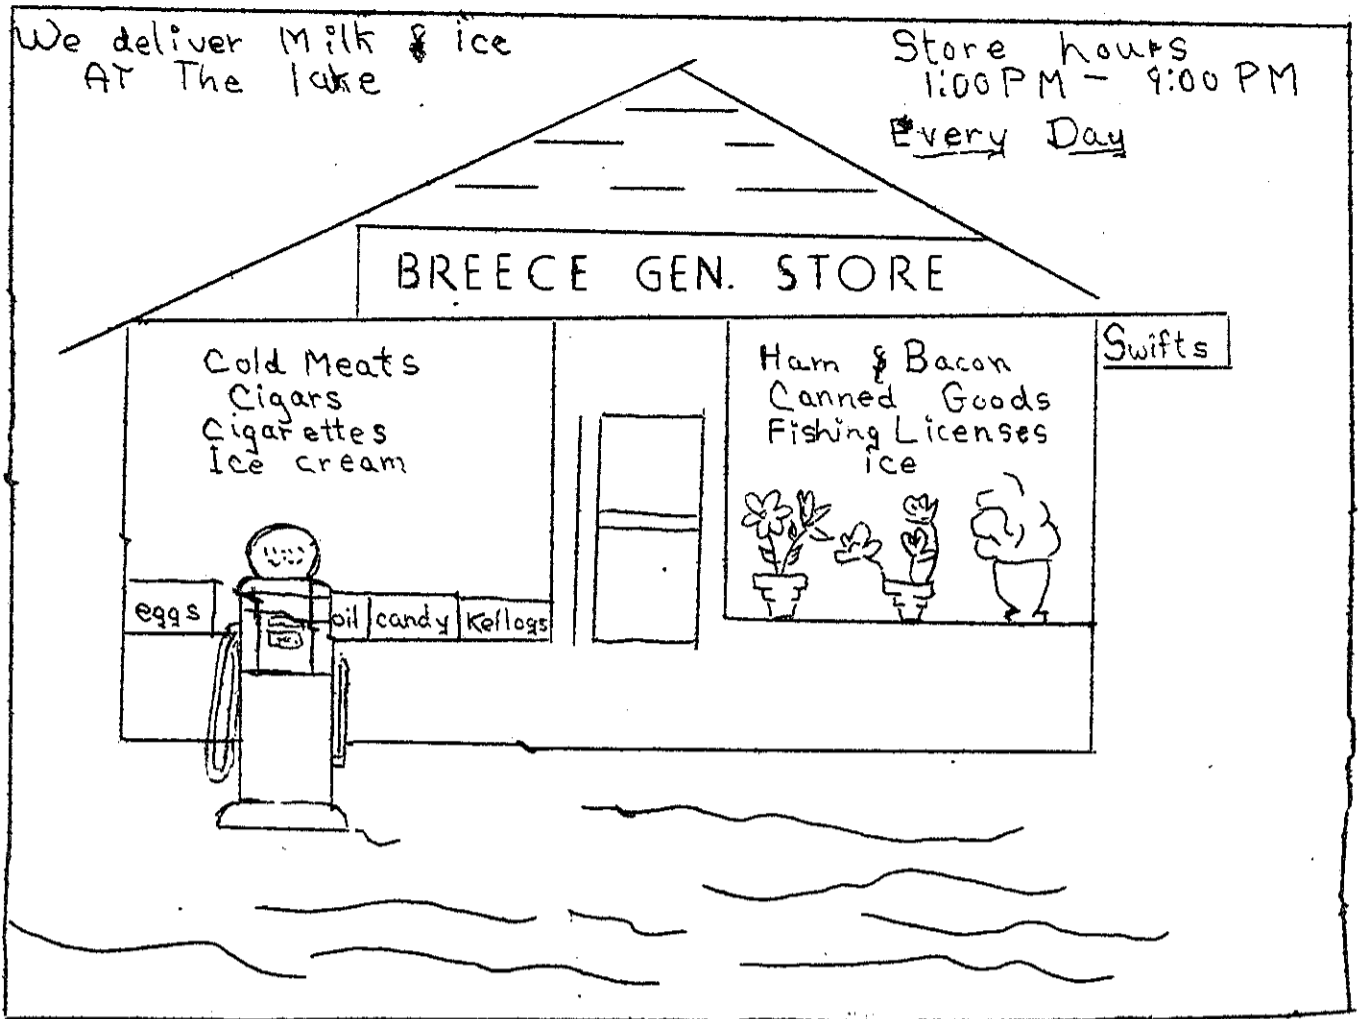 We deliver Milk & ice
AT The lake
Store hours
1:00 PM - 9:00 PM
Every Day
BREECE GEN. STORE
Swifts
Cold Meats
Cigars
Cigarettes
Ice cream
Ham & Bacon
Canned Goods
Fishing Licenses
ice
eggs
oil candy Kellogs